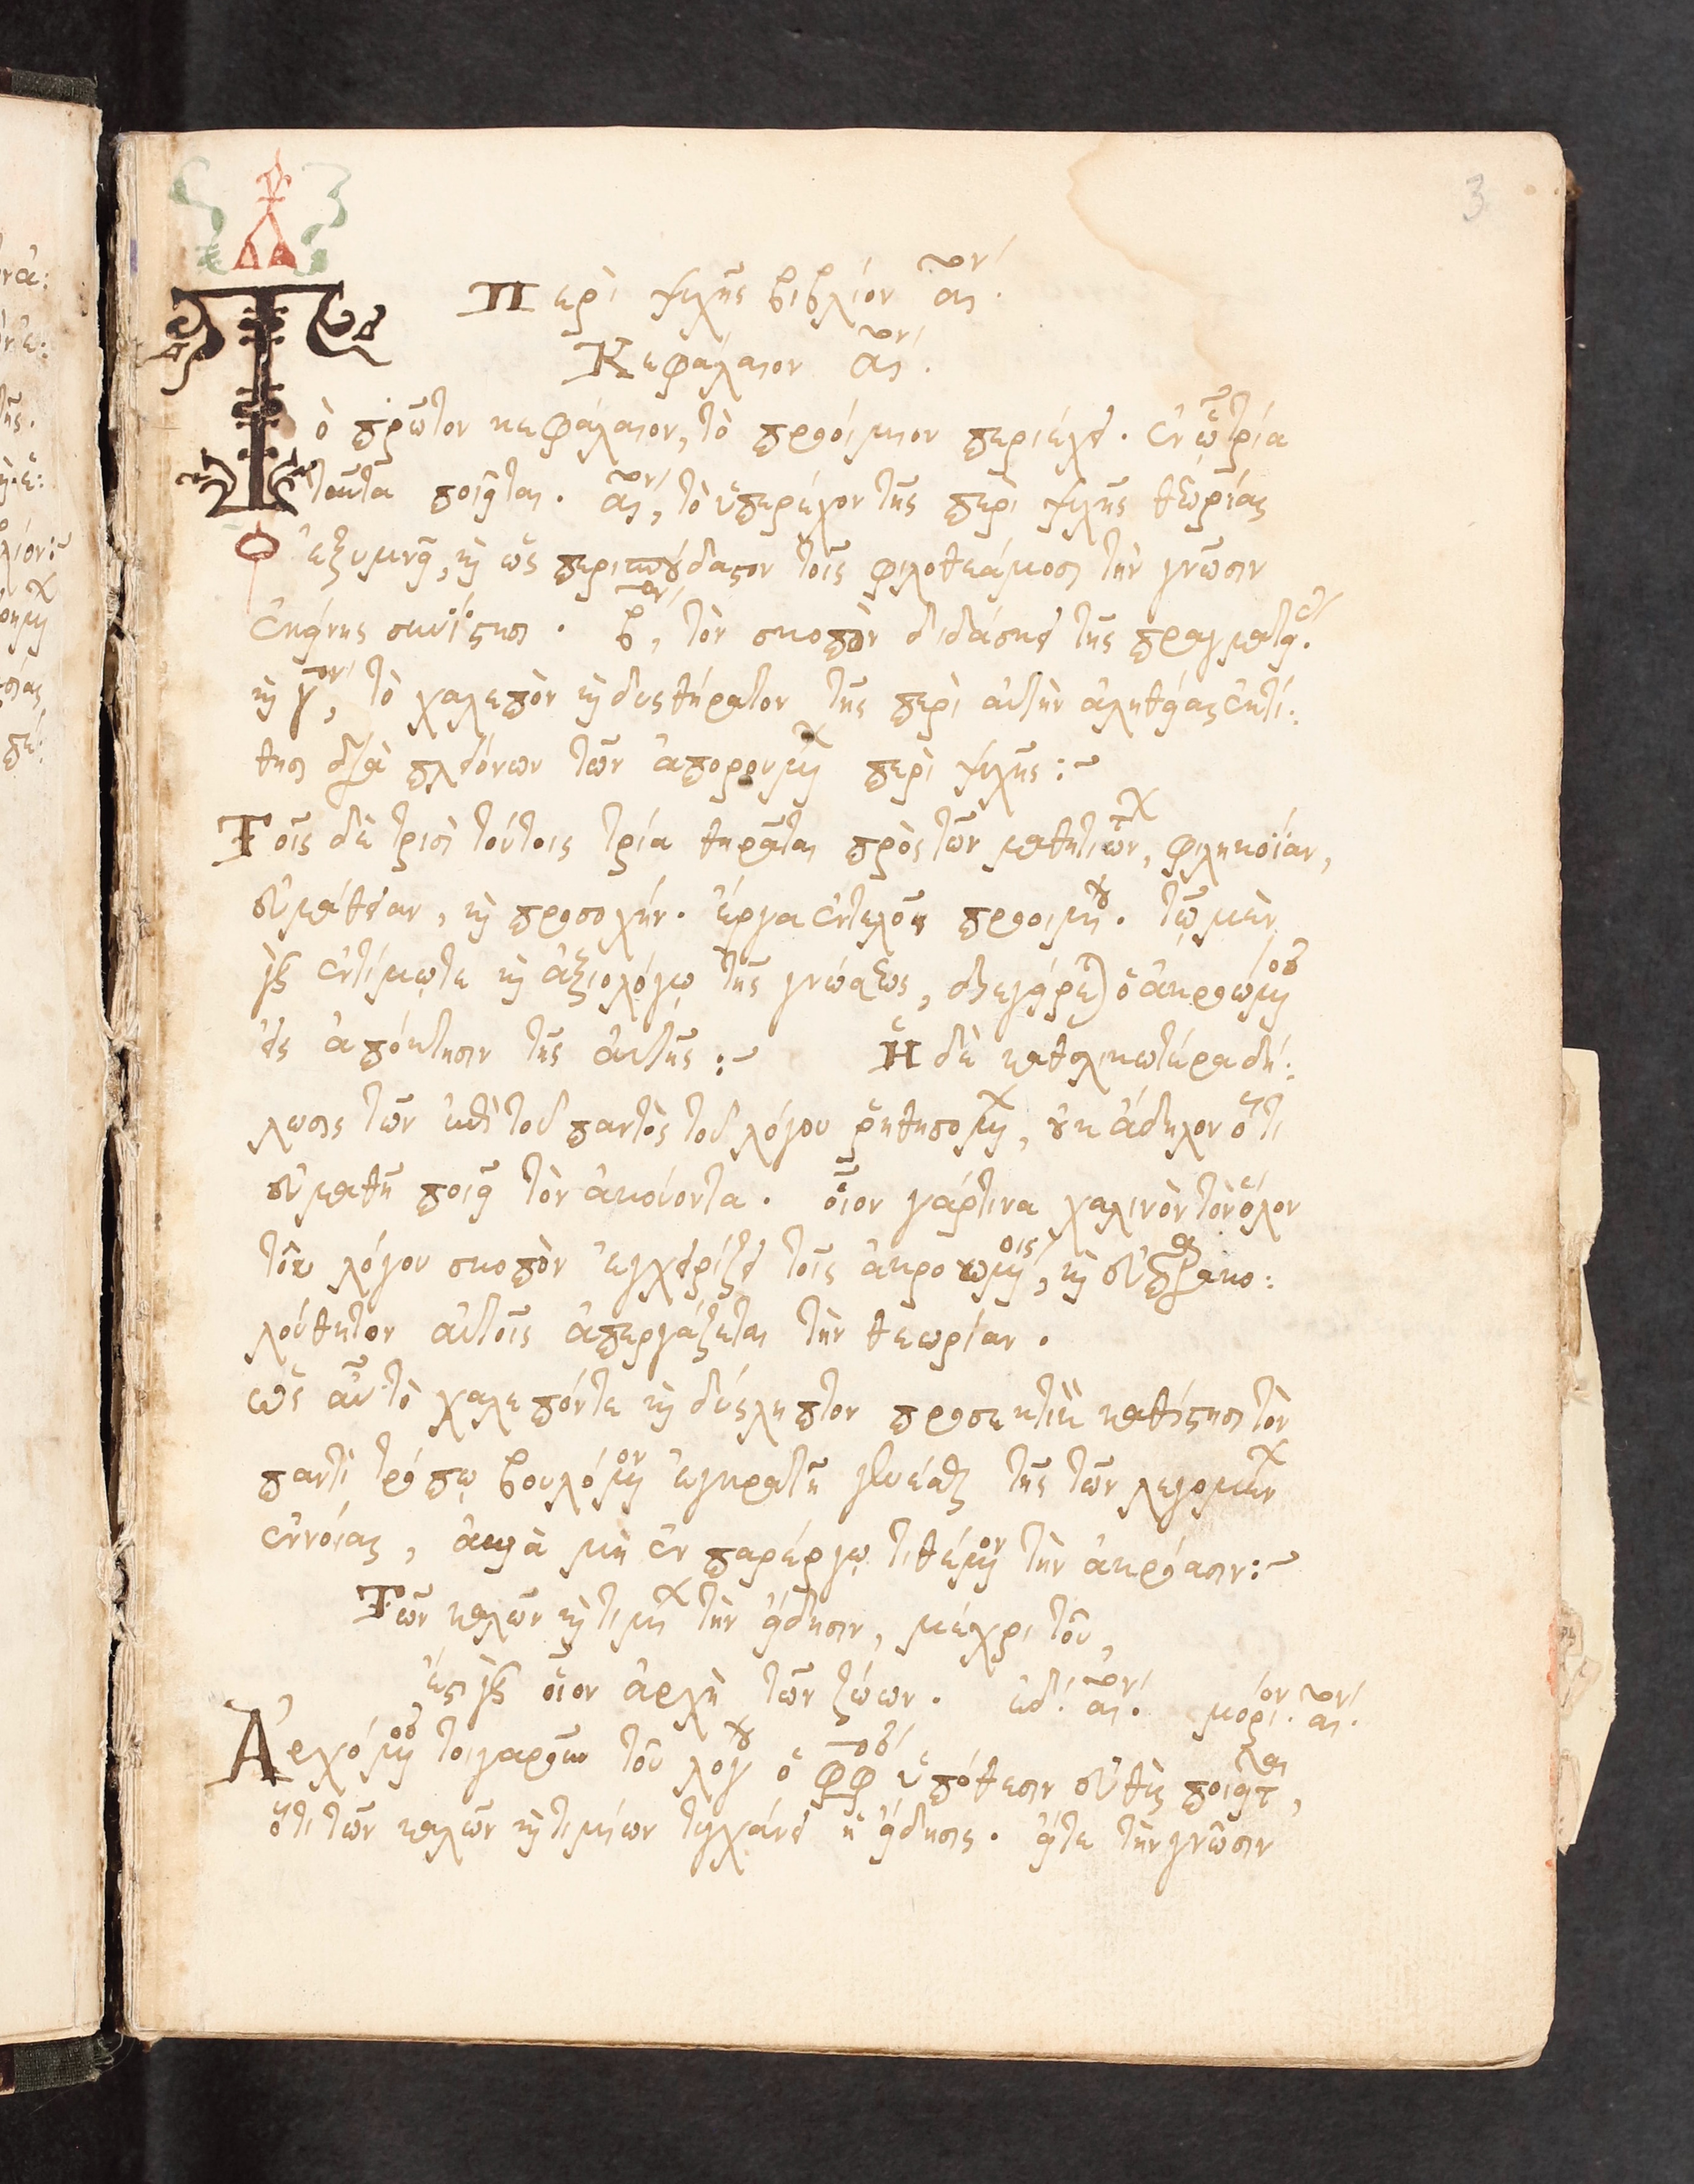 3
Περὶ ψυχῆς βιβλίον αον.
Κεφάλαιον αον.
Τὸ πρῶτον κεφάλαιον, τὸ προοίμιον περιέχει. ἐν ᾧ τρία
ταῦτα ποιεῖται. αον, τὸ ὑπερέχον τῆς περὶ ψυχῆς θεωρίας
ἐξυμνεῖ, καὶ ὡς περισπούδαστον τοῖς φιλοθεάμοσι τὴν γνῶσιν
ἐκείνης συνίστησι. βον, τὸν σκοπὸν διδάσκει τῆς πραγματείας.
καὶ γον, τὸ χαλεπὸν καὶ δυσθήρατον τῆς περὶ αὐτὴν ἀληθείας ἐκτί:
θησι διὰ πλειόνων τῶν ἀπορουμένων περὶ ψυχῆς:~
Τοῖς δὲ τρισὶ τούτοις τρία θηρᾶται πρὸς τῶν μαθητιώντων, φιληκοΐαν,
εὐμάθειαν, καὶ προσοχήν. ἔργα ἐντελοῦς προοιμίου. τῷ μὲν
γὰρ ἐντίμῳ τε καὶ ἀξιολόγῳ τῆς γνώσεως, διεγείρεται ὁ ἀκροώμενος
εἰς ἀπόκτησιν τῆς αὐτῆς:~ Ἡ δὲ καθολικωτέρα δή:
λωσις τῶν ἐπὶ τοῦ παντὸς τοῦ λόγου ῥηθησομένων, οὐκ ἄδηλον ὅτι
εὐμαθῆ ποιεῖ τὸν ἀκούοντα. οἷον γάρ τινα χαλινὸν τὸν ὅλον
τοῦ λόγου σκοπὸν ἐγχειρίζει τοῖς ἀκροωμένοις, καὶ εὐπαρακο:
λούθητον αὐτοῖς ἀπεργάζεται τὴν θεωρίαν.
ὡς αὖ τὸ χαλεπόν τε καὶ δύσληπτον προσεκτικὸν καθίστησι τὸν
παντὶ τρόπῳ βουλόμενον ἐγκρατῆ γενέσθαι τῆς τῶν λεγομένων
ἐννοίας, ἀλλὰ μὴ ἐν παρέργῳ τιθέμενον τὴν ἀκρόασιν:~
Τῶν καλῶν καὶ τιμίων τὴν εἴδησιν, μέχρι τοῦ,
ἔστι γὰρ οἷον ἀρχὴ τῶν ζώων. ἐδ. αον. μόριον. αον.
Ἀρχόμενος τοιγαροῦν τοῦ λόγου ὁ φφος ὑπόθεσιν εὐθὺς ποιεῖται,
ὅτι τῶν καλῶν καὶ τιμίων τυγχάνει ἡ εἴδησις. εἴτε τὴν γνῶσιν